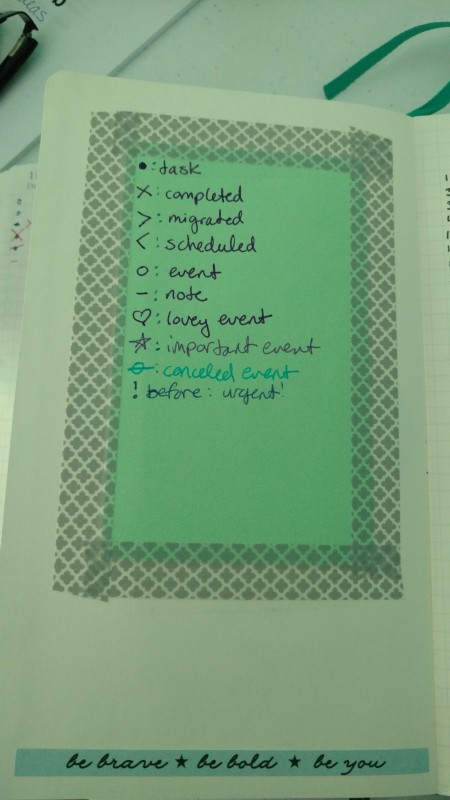 • : task
X : completed
> : migrated
< : scheduled
o : event
– : note
♡ : lovey event
☆ : important event
⊖ : canceled event
! before : urgent!
be brave ★ be bold ★ be you